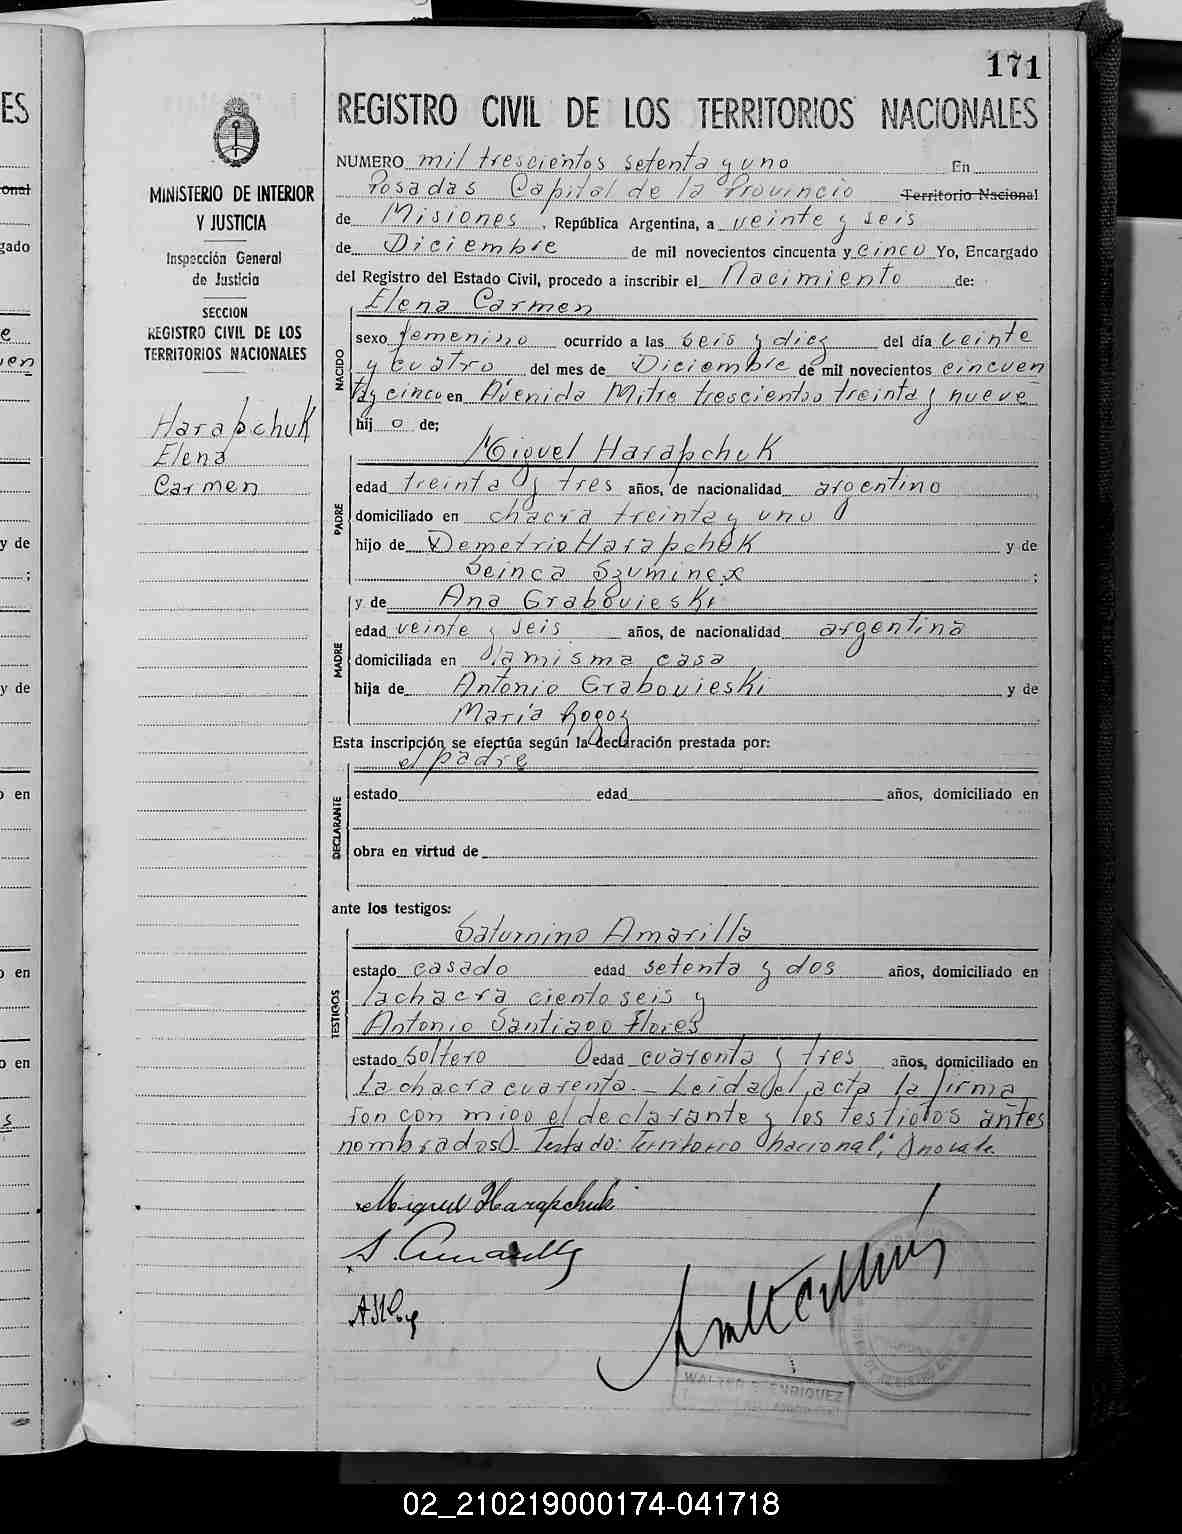 171
REGISTRO CIVIL DE LOS TERRITORIOS NACIONALES
MINISTERIO DE INTERIOR
Y JUSTICIA
Inspección General
de Justicia
SECCION
REGISTRO CIVIL DE LOS
TERRITORIOS NACIONALES
Harapchuk
Elena
Carmen
NUMERO mil trescientos setenta y uno En
Posadas Capital de la Provincio Territorio Nacional
de Misiones, República Argentina, a veinte y seis
de Diciembre de mil novecientos cincuenta y cinco Yo, Encargado
del Registro del Estado Civil, procedo a inscribir el Nacimiento de:
Elena Carmen
NACIDO
sexo femenino ocurrido a las seis y diez del día veinte
y cuatro del mes de Diciembre de mil novecientos cincuen
ta y cinco en Avenida Mitre trescientos treinta y nueve
hij o de;
Miguel Harapchuk
PADRE
edad treinta y tres años, de nacionalidad argentino
domiciliado en chacra treinta y uno
hijo de Demetrio Harapchuk y de
Seinca Szuminex ;
y de Ana Grabovieski
MADRE
edad veinte y seis años, de nacionalidad argentina
domiciliada en la misma casa
hija de Antonio Grabovieski y de
María Rogoz
Esta inscripción se efectúa según la declaración prestada por:
el padre
DECLARANTE
estado edad años, domiciliado en
obra en virtud de
ante los testigos:
Saturnino Amarilla
TESTIGOS
estado casado edad setenta y dos años, domiciliado en
la chacra ciento seis y
Antonio Santiago Flores
estado Soltero edad cuarenta y tres años, domiciliado en
La chacra cuarenta.- Leída el acta la firma
ron con migo el declarante y los testigos antes
nombrados.- Testado: Territorio nacional;
Miguel Harapchuk
S. Amarilla
WALTER ENRIQUEZ
02_210219000174-041718